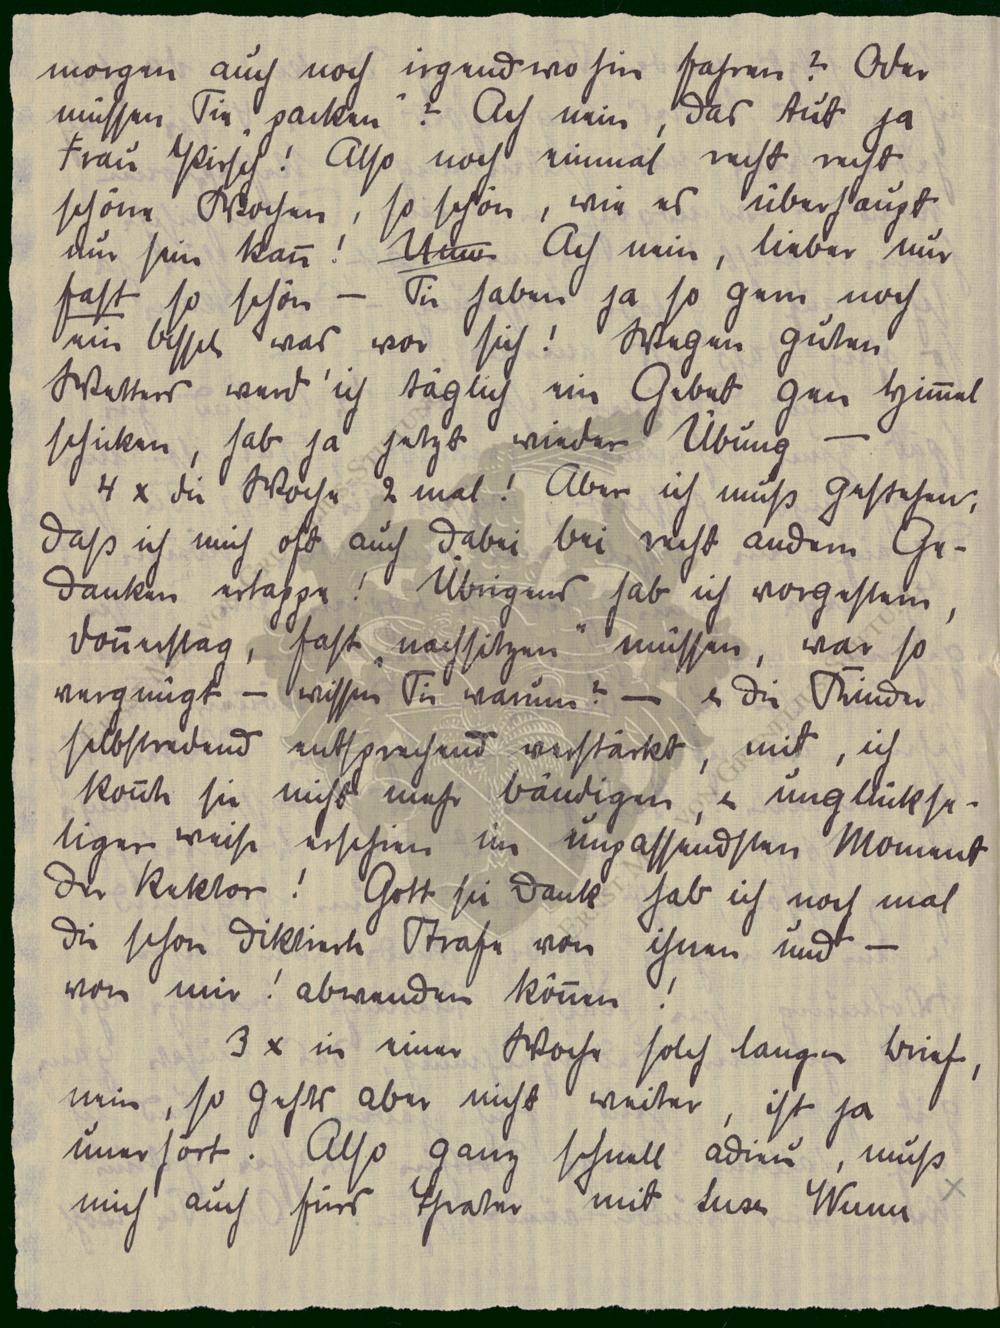 morgen auch noch irgendwohin fahren? Oder
müssen Sie „packen“? Ach nein, das tut ja
Frau Kirsch! Also noch einmal recht recht
schöne Wochen, so schön, wie es überhaupt
nur sein kañ! Ach nein, lieber nur
fast so schön — Sie haben ja so gern noch
ein bissel was vor sich! Wegen guten
Wetters werd' ich täglich ein Gebet gen Him̄el
schicken, hab ja jetzt wieder Übung —
4 x die Woche 2 mal! Aber ich muß gestehen,
daß ich mich oft auch dabei bei recht andern Ge-
danken ertappe! Übrigens hab ich vorgestern,
Doñerstag, fast „nachsitzen“ müssen, war so
vergnügt — wissen Sie warum? — & die Kinder
selbstredend entsprechend verstärkt, mit, ich
koñte sie nicht mehr bändigen, & unglückse-
liger weise erschien im unpassendsten Moment
der Rektor! Gott sei Dank hab ich noch mal
die schon diktierte Strafe von ihnen und —
von mir! abwenden köñen!
3 x in einer Woche solch langen Brief,
nein, so gehts aber nicht weiter, ist ja
unerhört. Also ganz schnell adieu, muß
mich auch fürs Theater mit Luse Wunn